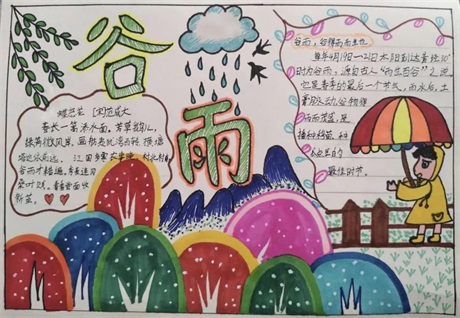 谷
雨
蝶恋花 [宋]范成大
春长一篙添水面,芳草鹅儿,
绿满微风岸,画舫夷犹湾百转,横塘
塔近依前远。江国多寒农事晚,村北村南
谷雨才耕遍,秀麦连冈
桑叶贱,看看尝面收
新茧。
谷雨,谷得雨而生也
每年4月19日—21日太阳到达黄经30°
时为谷雨,源自古人"雨生百谷"之说
它是春季的最后一个节气,雨水后,土
膏脉动,谷物
雨而茂盛,是
播种移苗、
点豆的
最佳时节.